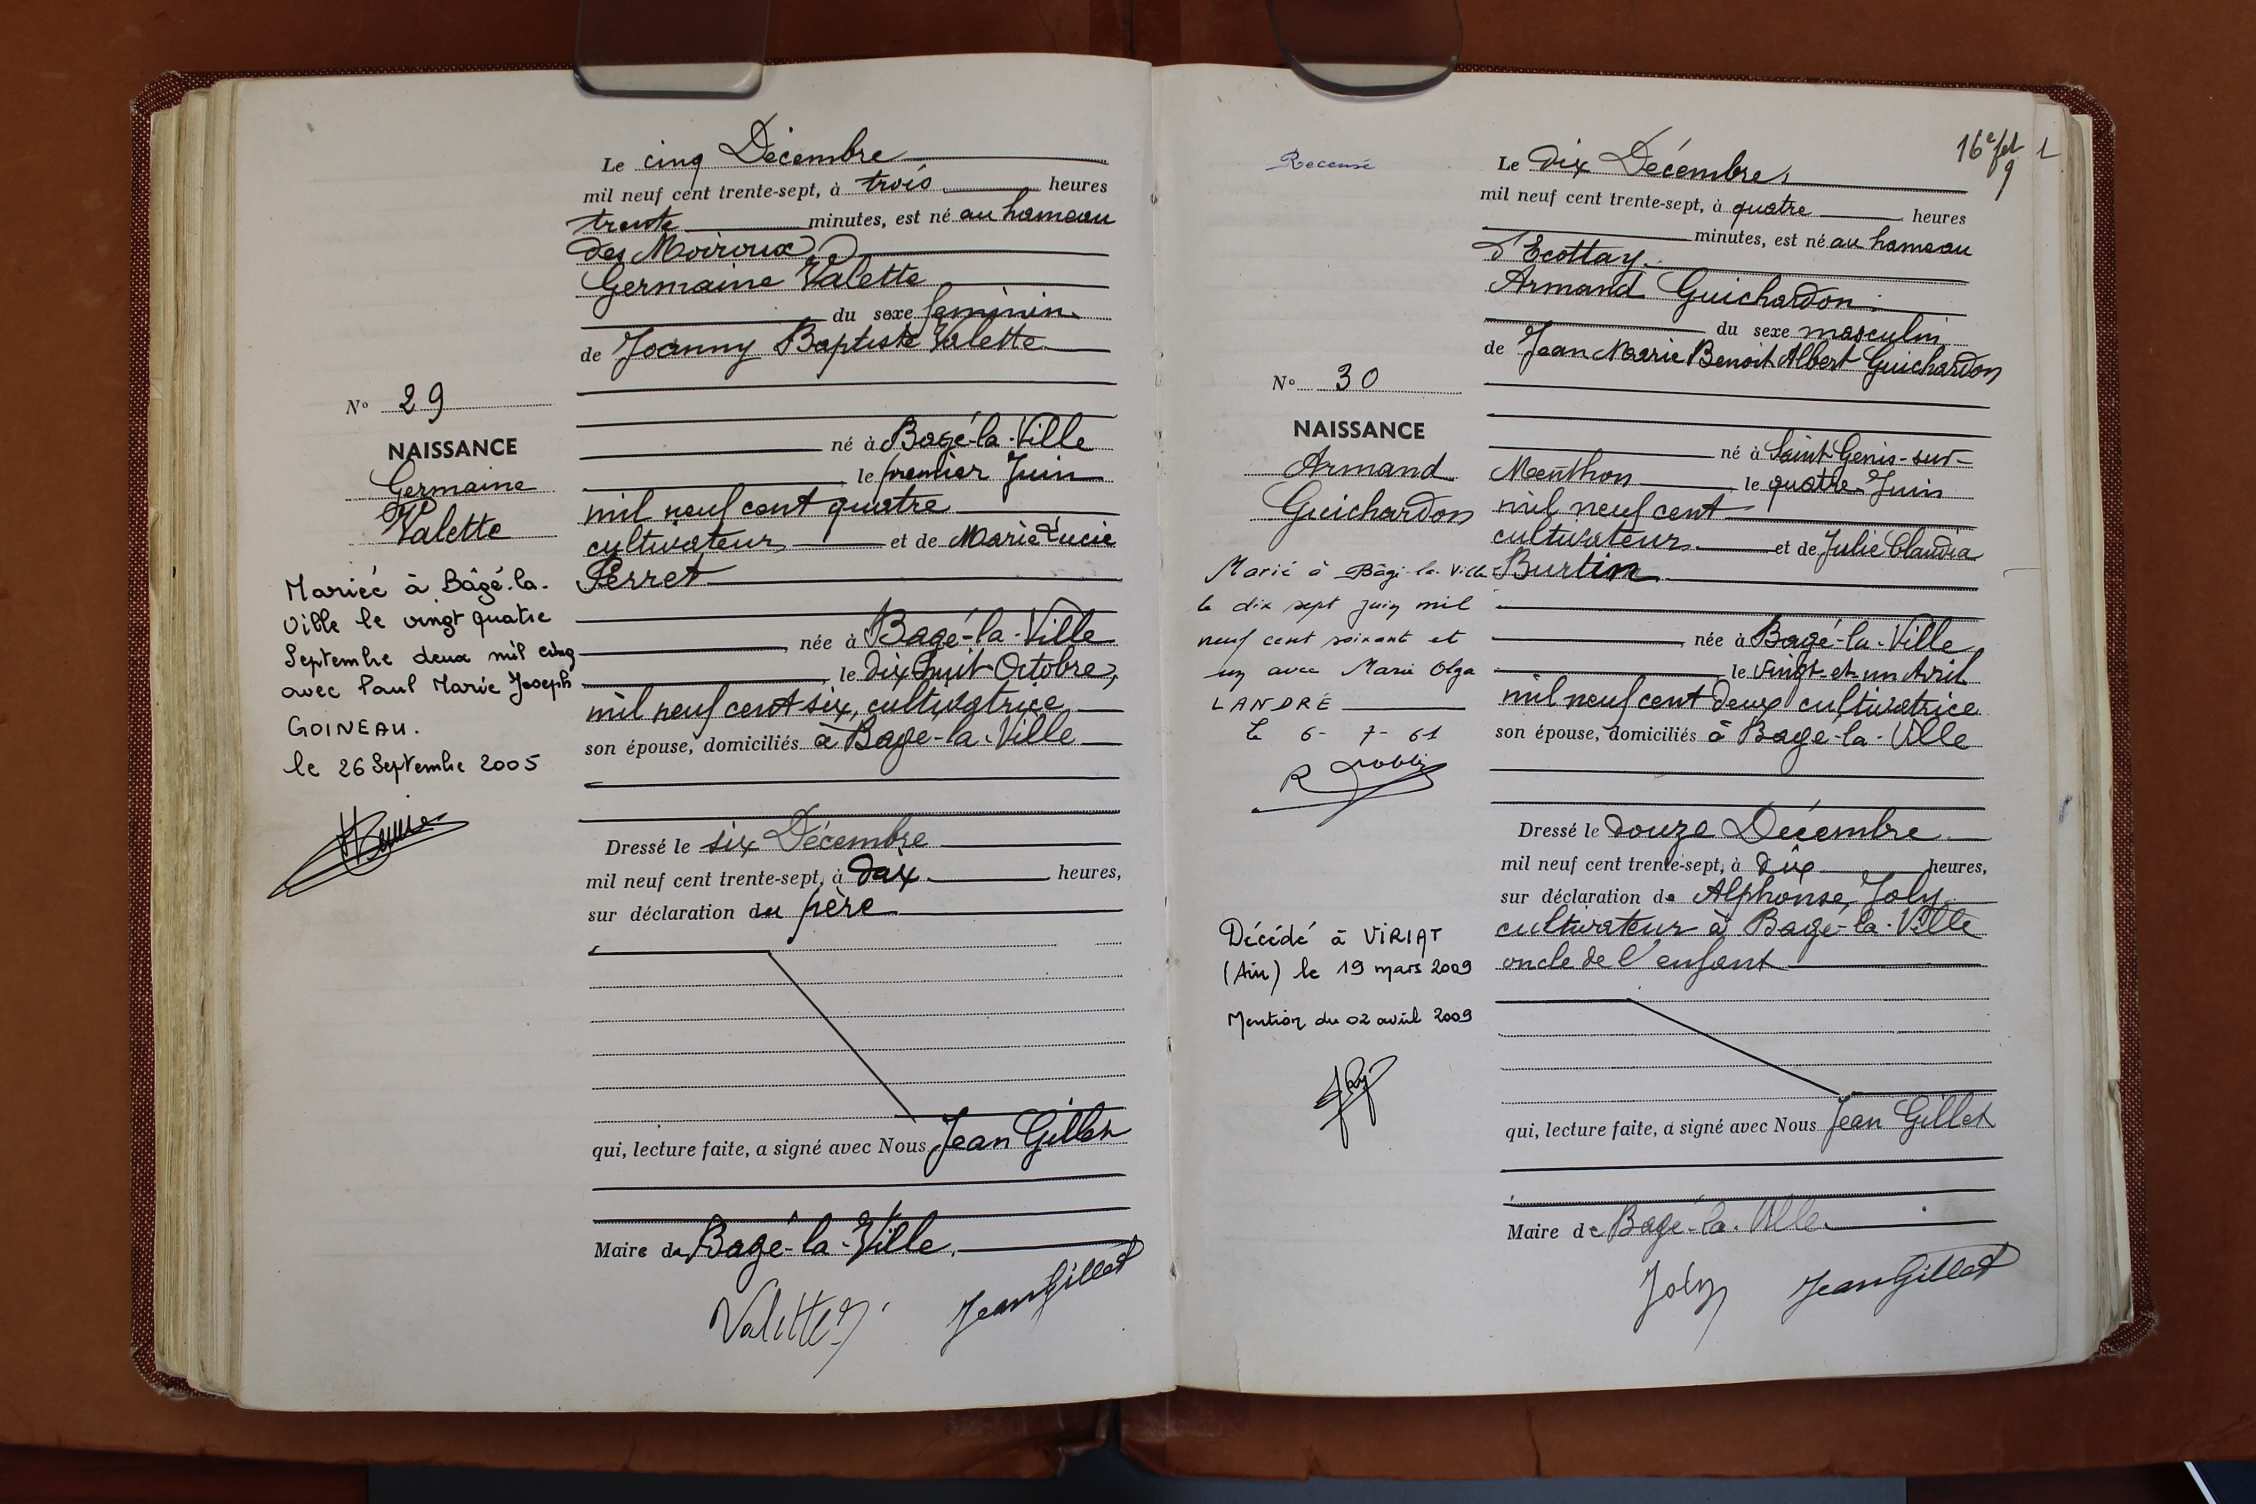 Le cinq Décembre
mil neuf cent trente-sept, à trois heures
trente minutes, est né au hameau
des Moiroux
Germaine Valette
du sexe féminin
de Joanny Baptiste Valette
N° 29
NAISSANCE
Germaine
Valette
né à Bagé-la-Ville
le premier Juin
mil neuf cent quatre
cultivateur et de Marie Lucie
Perret
née à Bagé-la-Ville
le dix huit Octobre,
mil neuf cent six, cultivatrice
son épouse, domiciliés à Bagé-la-Ville
Mariée à Bâgé-la-
Ville le vingt quatre
Septembre deux mil cinq
avec Paul Marie Joseph
GOINEAU.
le 26 Septembre 2005
Dressé le six Décembre
mil neuf cent trente-sept, à dix heures,
sur déclaration du père
qui, lecture faite, a signé avec Nous Jean Gillet
Maire de Bagé-la-Ville.
Valette
Jean Gillet
16e fet 1
9
Recensé
Le dix Décembre,
mil neuf cent trente-sept, à quatre heures
minutes, est né au hameau
d'Ecottay.
Armand Guichardon
du sexe masculin
de Jean Marie Benoit Albert Guichardon
N° 30
NAISSANCE
Armand
Guichardon
né à Saint Genis-sur-
Menthon le quatre Juin
mil neuf cent
cultivateur et de Julie Claudia
Burtin
née à Bagé-la-Ville
le vingt-et-un Avril
mil neuf cent deux cultivatrice
son épouse, domiciliés à Bagé-la-Ville
Marié à Bâgé-la-Ville
le dix sept juin mil
neuf cent soixante et
un avec Marie Olga
LANDRÉ
Le 6-7-61
Dressé le douze Décembre
mil neuf cent trente-sept, à dix heures,
sur déclaration de Alphonse Joly
cultivateur à Bagé-la-Ville
oncle de l'enfant
Décédé à VIRIAT
(Ain) le 19 mars 2009
Mention du 02 avril 2009
qui, lecture faite, a signé avec Nous Jean Gillet
Maire de Bagé-la-Ville.
Joly
Jean Gillet